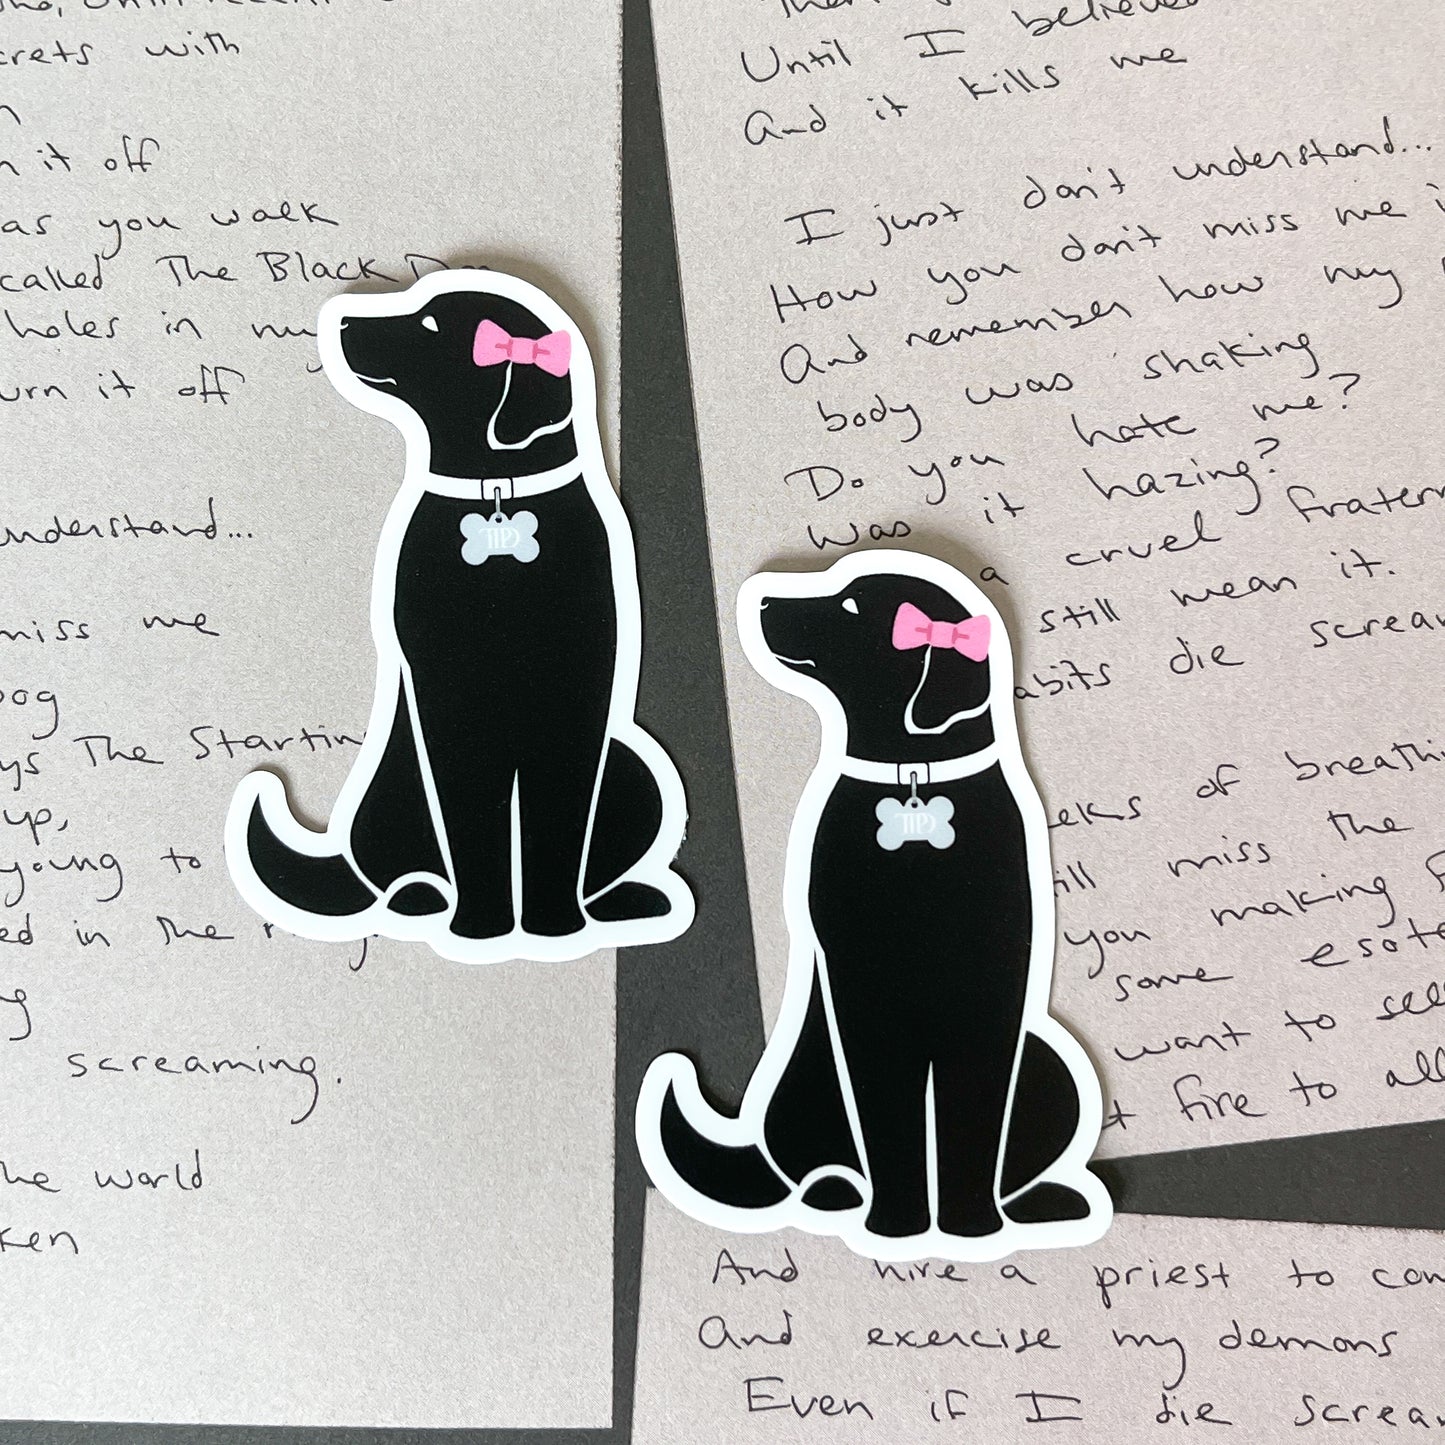 crets with
n it off
as you walk
called The Black
holes in my
urn it off
understand...
miss me
og
ys The Startin
up,
young to
ed in the
screaming.
he world
ken
Until I believed
And it kills me
I just don't understand...
How you don't miss me i
And remember how my
body was shaking
Do you hate me?
Was it hazing?
a cruel fratern
still mean it.
abits die screa
eks of breathi
ill miss the
you making f
some esote
want to sell
t fire to all
And hire a priest to com
And exercise my demons
Even if I die screa
TTPD
TTPD